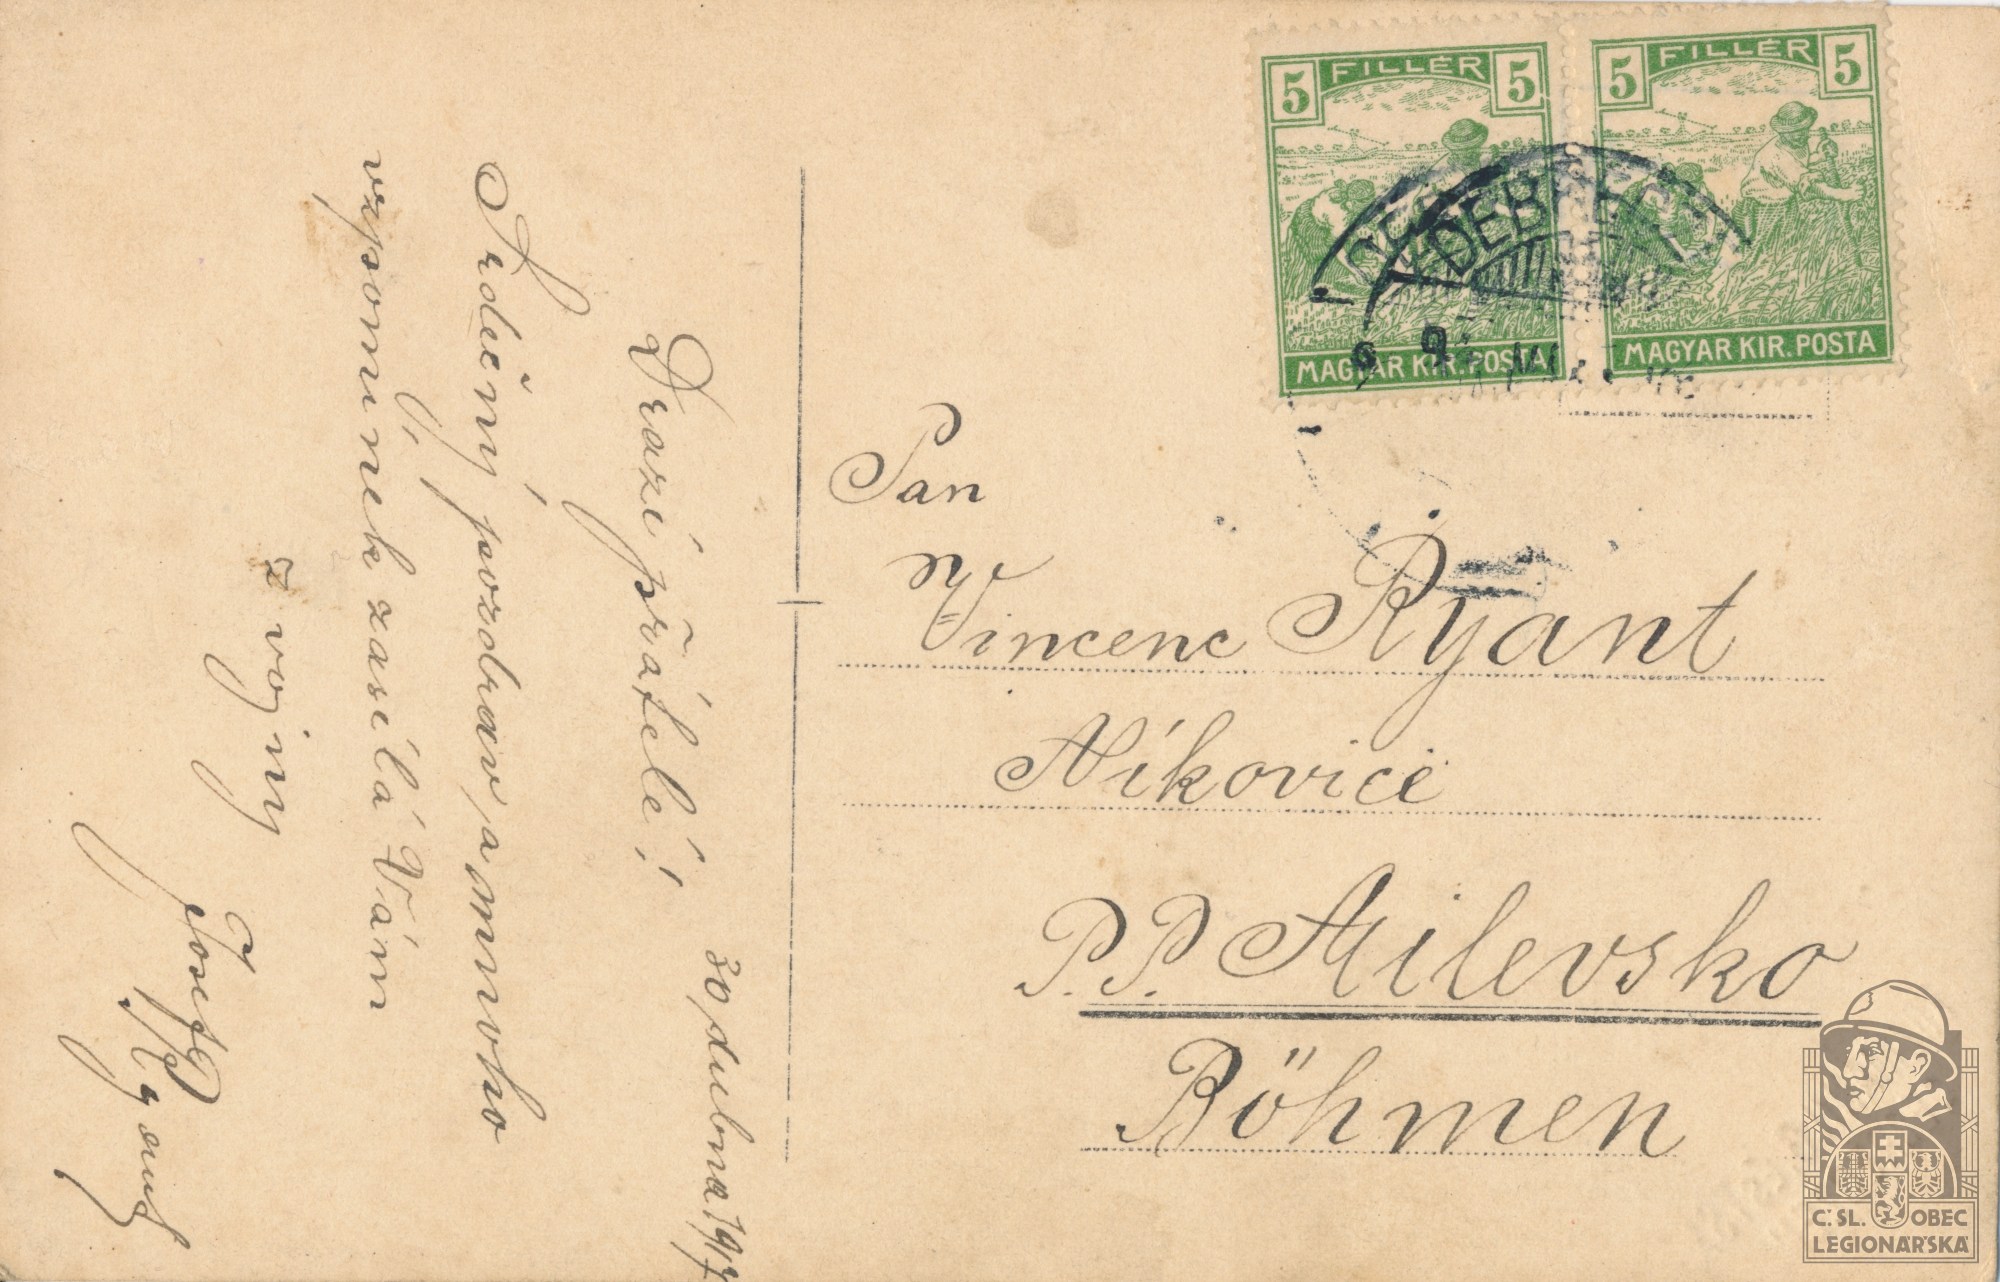 30, dubna, 1917
Drazí přátelé!
Srdečný pozdrav, a mnoho
vzpomínek zasílá Vám
z vojny
Josef Ryant
5 FILLÉR 5
MAGYAR KIR. POSTA
5 FILLÉR 5
MAGYAR KIR. POSTA
DEBRECZEN
Pan
Vincenc Ryant
Níkovice
P.P. Milevsko
Böhmen
Č.SL. OBEC
LEGIONÁŘSKÁ